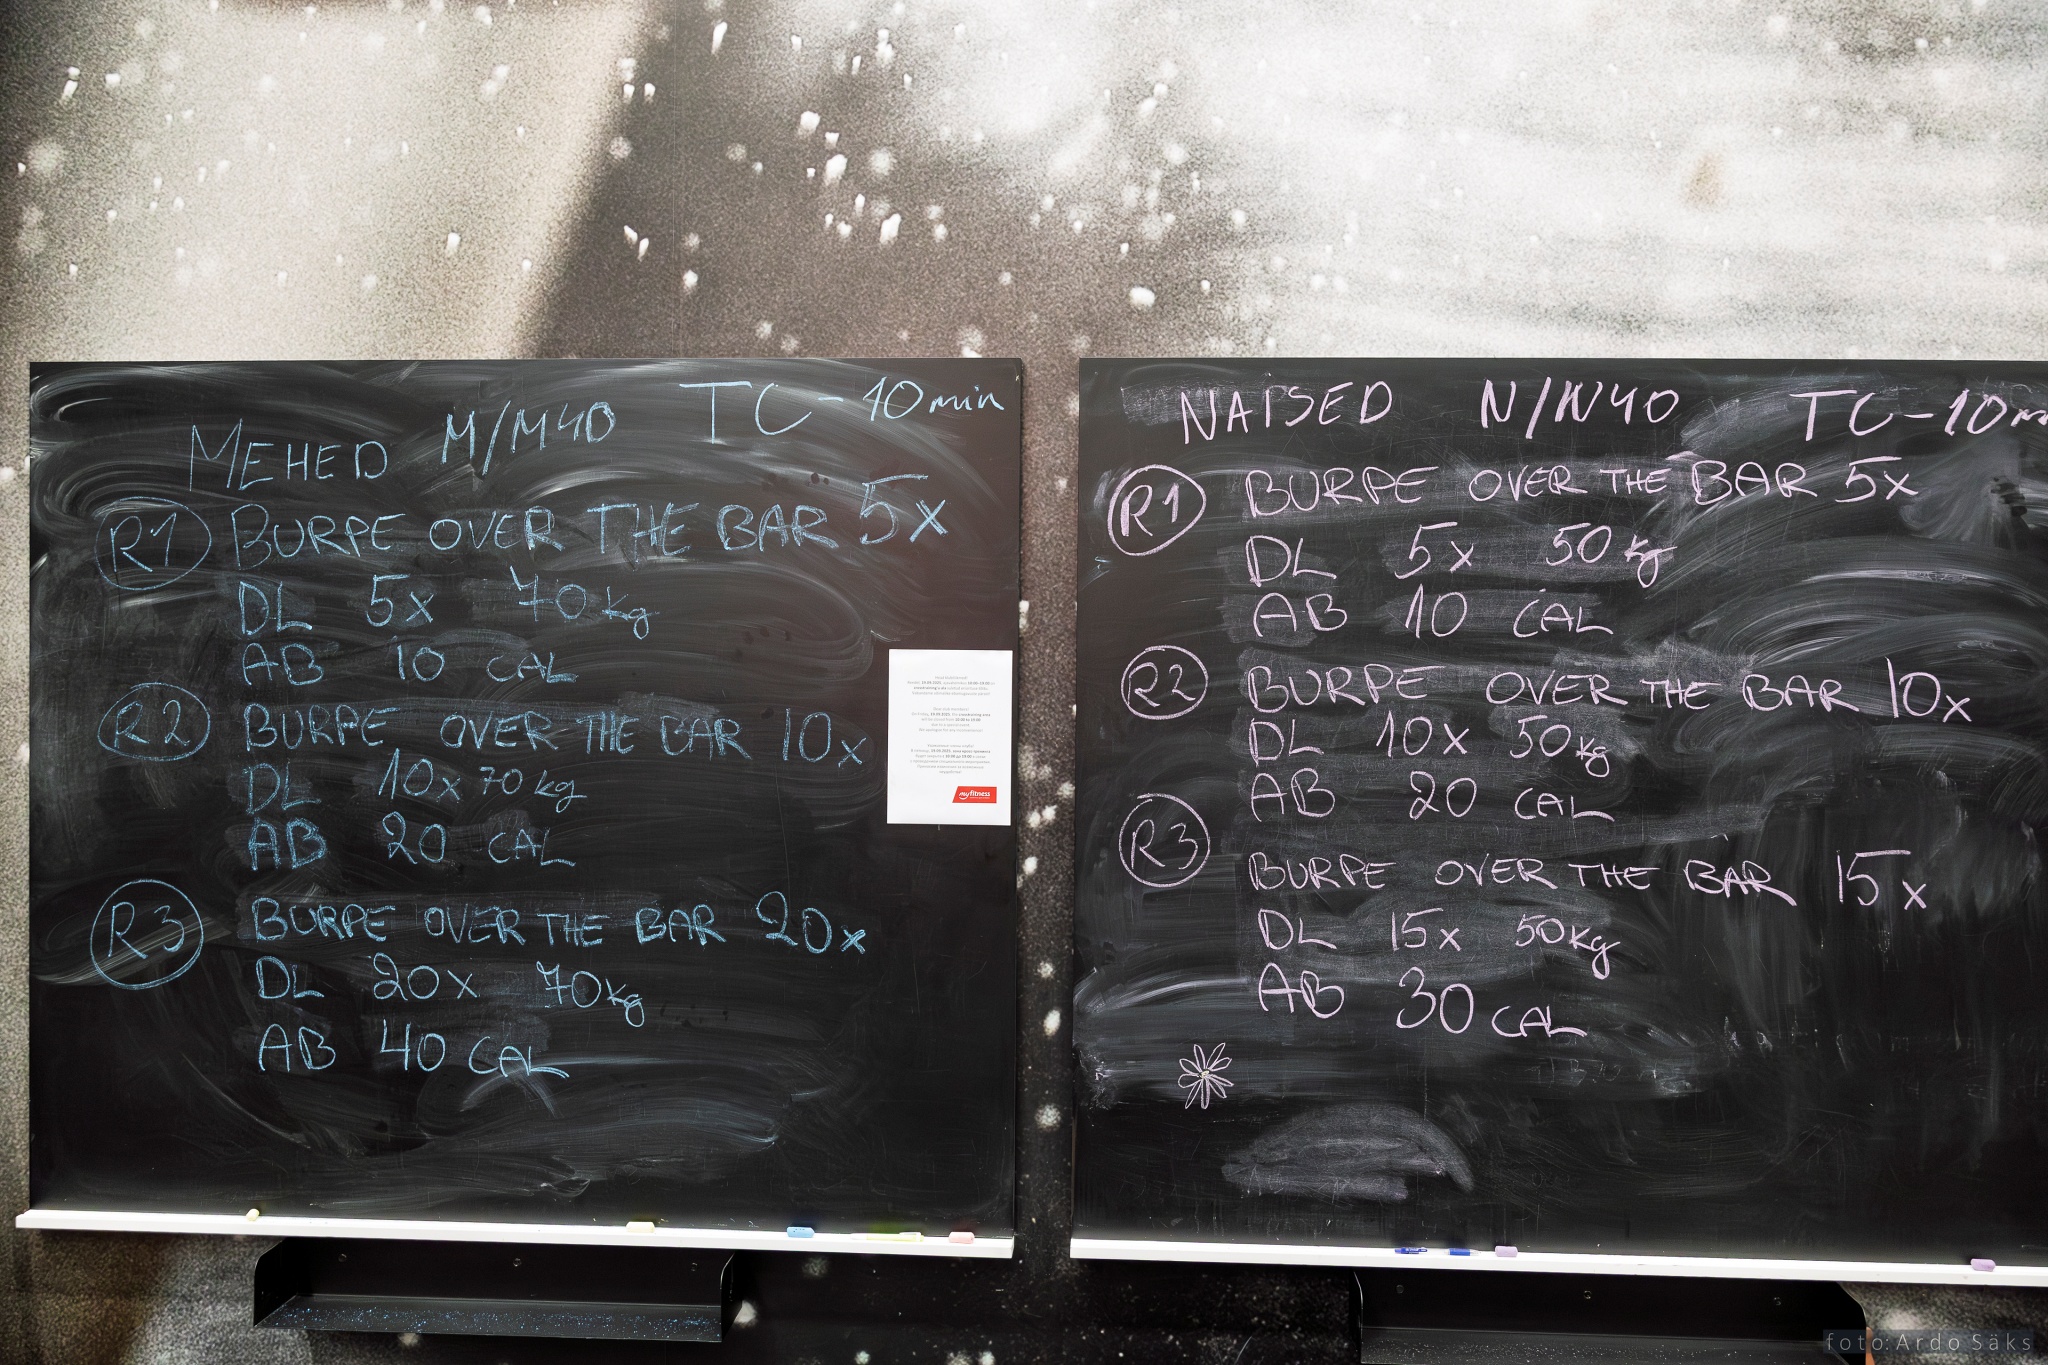 MEHED M/M40 TC-10min
R1 BURPE OVER THE BAR 5x
DL 5x 70kg
AB 10 CAL
R2 BURPE OVER THE BAR 10x
DL 10x 70kg
AB 20 CAL
R3 BURPE OVER THE BAR 20x
DL 20x 70kg
AB 40 CAL
myfitness
NAISED N/N40 TC-10m
R1 BURPE OVER THE BAR 5x
DL 5x 50kg
AB 10 CAL
R2 BURPE OVER THE BAR 10x
DL 10x 50kg
AB 20 CAL
R3 BURPE OVER THE BAR 15x
DL 15x 50kg
AB 30 CAL
foto: Ardo Säks